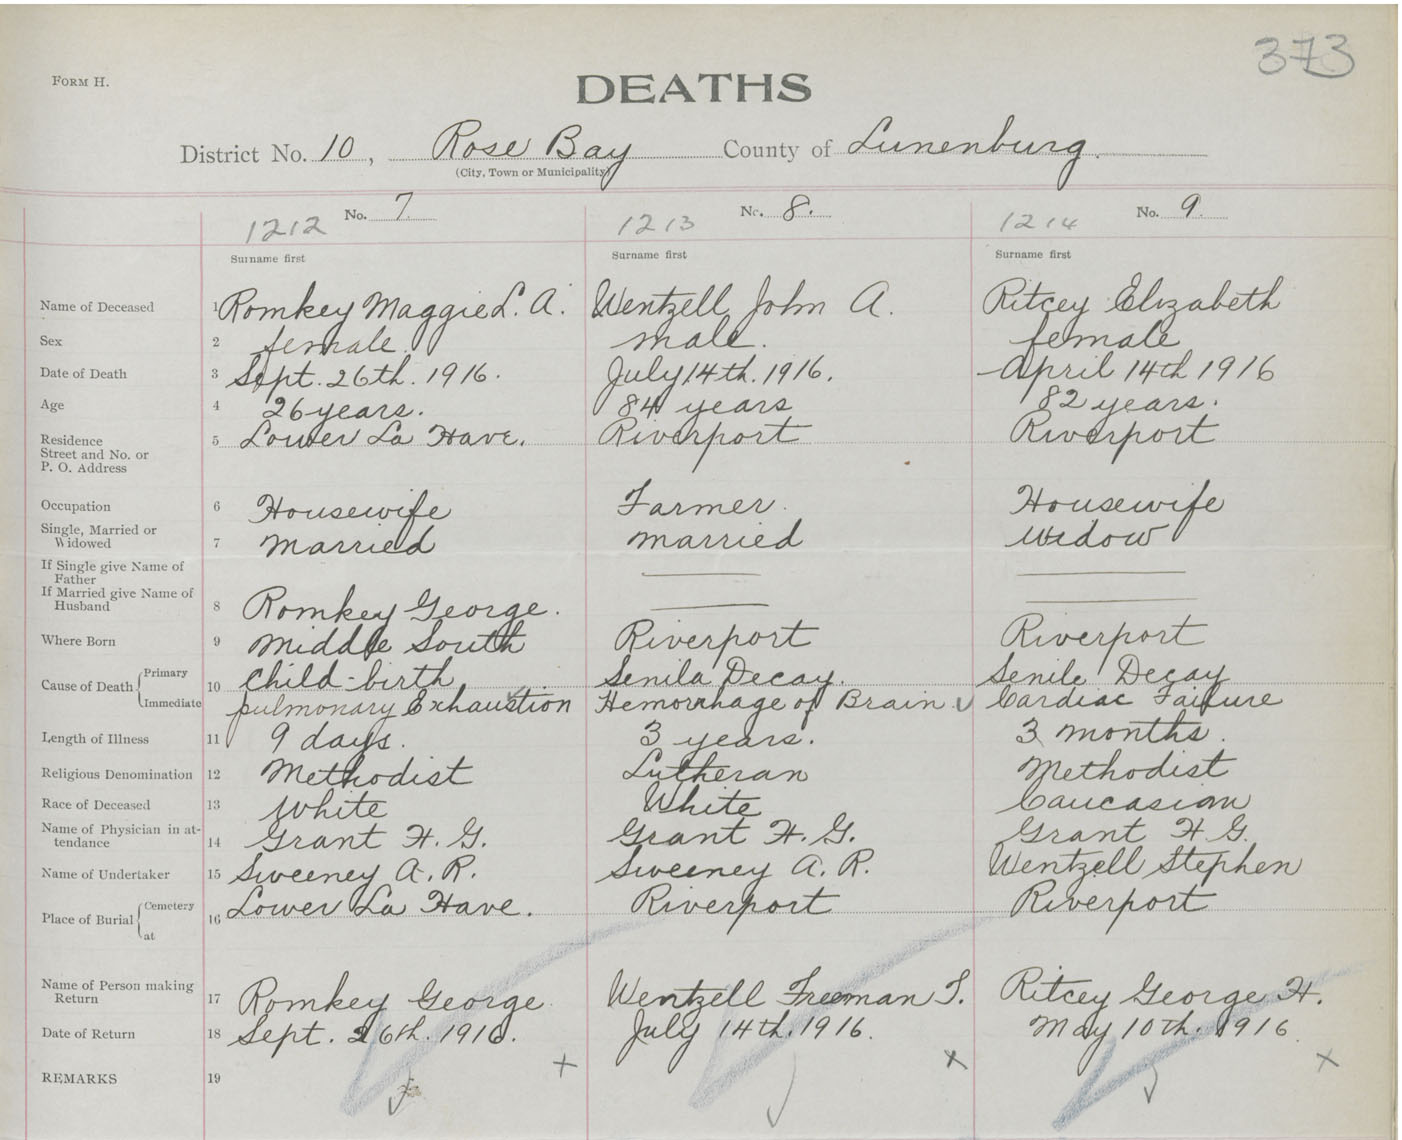 373
FORM H.
DEATHS
District No. 10, Rose Bay County of Lunenburg.
(City, Town or Municipality)
1212 No. 7. 1213 No. 8. 1214 No. 9.
Surname first Surname first Surname first
Name of Deceased 1 Romkey Maggie L. A. Wentzell John A. Ritcey Elizabeth
Sex 2 female. male. female
Date of Death 3 Sept. 26th. 1916. July 14th. 1916. April 14th 1916
Age 4 26 years. 84 years 82 years.
Residence 5 Lower La Have. Riverport Riverport
Street and No. or
P. O. Address
Occupation 6 Housewife Farmer. Housewife
Single, Married or
Widowed 7 Married married Widow
If Single give Name of
Father
If Married give Name of
Husband 8 Romkey George.
Where Born 9 Middle South Riverport Riverport
Cause of Death Primary 10 Child-birth Senila Decay. Senile Decay
Immediate pulmonary Exhaustion Hemorrhage of Brain. Cardiac Failure
Length of Illness 11 9 days. 3 years. 3 months.
Religious Denomination 12 Methodist Lutheran Methodist
Race of Deceased 13 White White Caucasian
Name of Physician in at-
tendance 14 Grant H. G. Grant H. G. Grant H G.
Name of Undertaker 15 Sweeney A. R. Sweeney A. R. Wentzell Stephen
Place of Burial Cemetery 16 Lower La Have. Riverport Riverport
at
Name of Person making
Return 17 Romkey George Wentzell Freeman T. Ritcey George H.
Date of Return 18 Sept. 26th. 1916. July 14th. 1916. May 10th. 1916
REMARKS 19